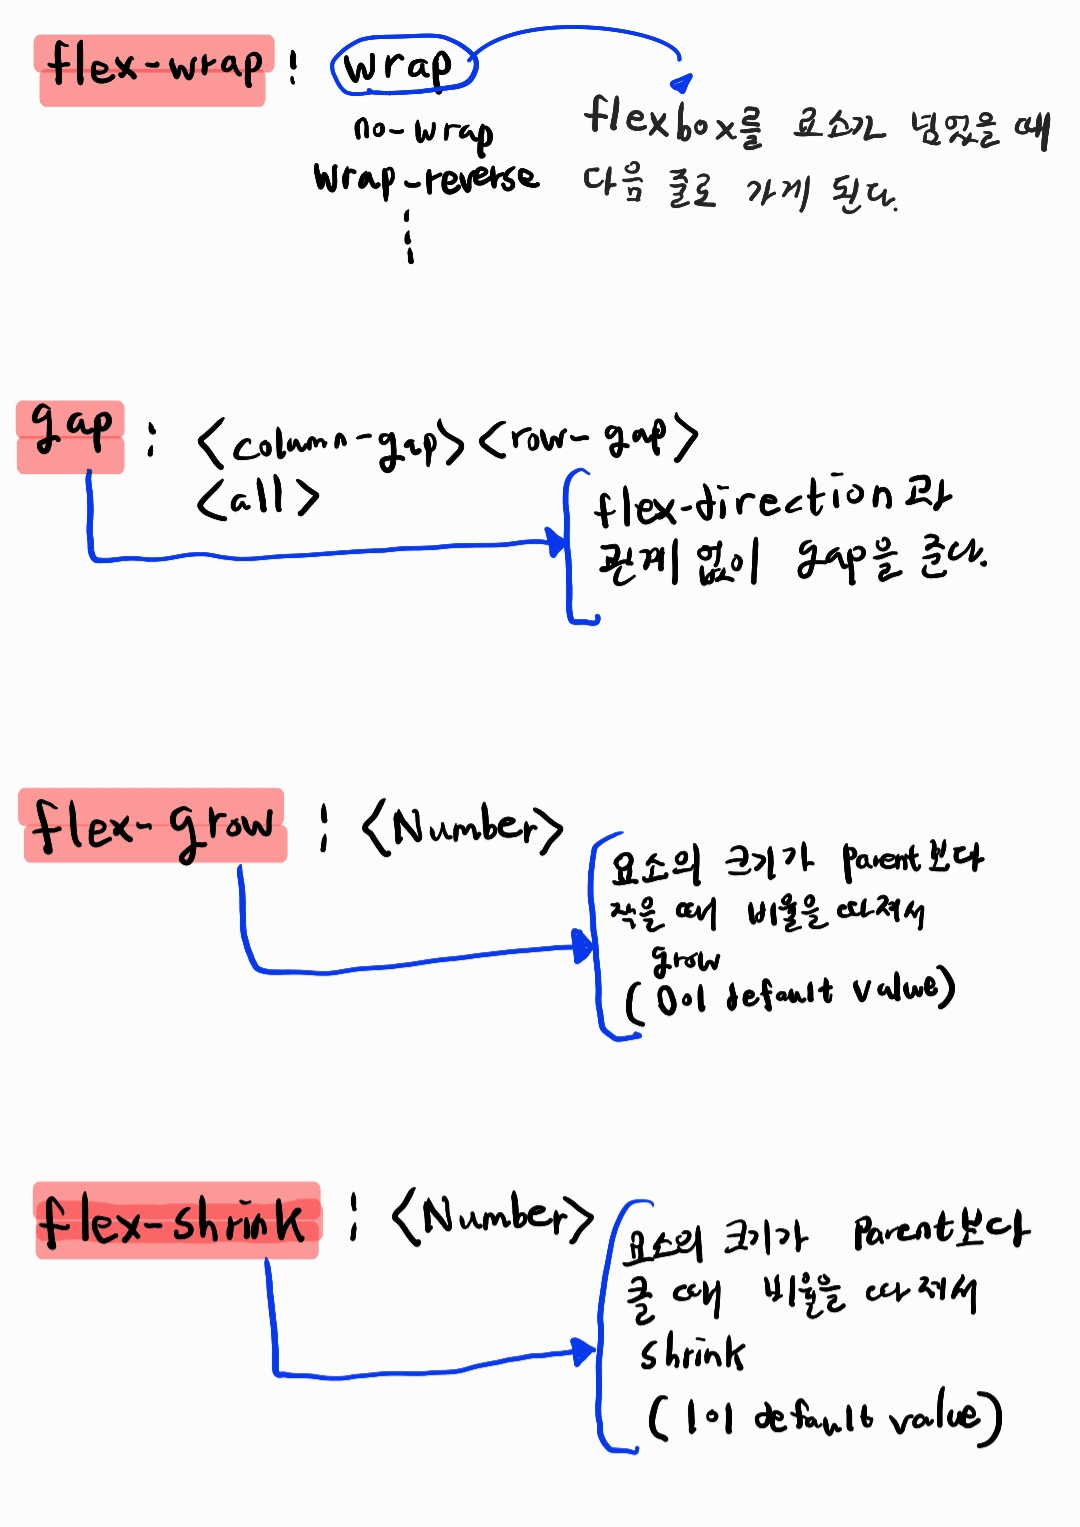 flex-wrap : wrap
no-wrap
wrap-reverse
flexbox를 요소가 넘었을 때
다음 줄로 가게 된다.
gap : <column-gap> <row-gap>
<all>
flex-direction과
관계 없이 gap을 준다.
flex-grow : <Number>
요소의 크기가 parent보다
작을 때 비율을 따져서
grow
( 0이 default value)
flex-shrink : <Number>
요소의 크기가 parent보다
클 때 비율을 따져서
shrink
( 1이 default value)